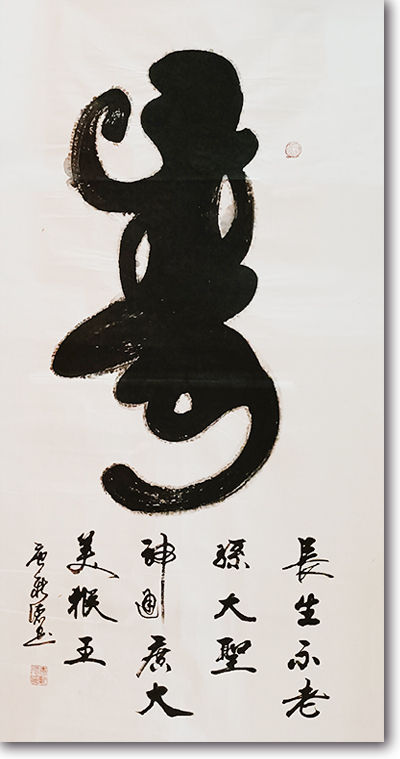 寿
長生不老
孫大聖
神通廣大
美猴王